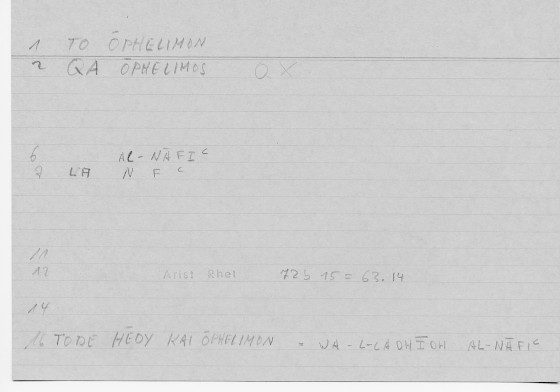 1 TO ŌPHELIMON
2 QA ŌPHELIMOS OX
6 AL-NĀFIᶜ
7 LA N F ᶜ
11
12 Arist Rhet 72b 15 = 63.14
14
16 TO DE HĒDY KAI ŌPHELIMON = WA-L-LADHĪDH AL-NĀFIᶜ